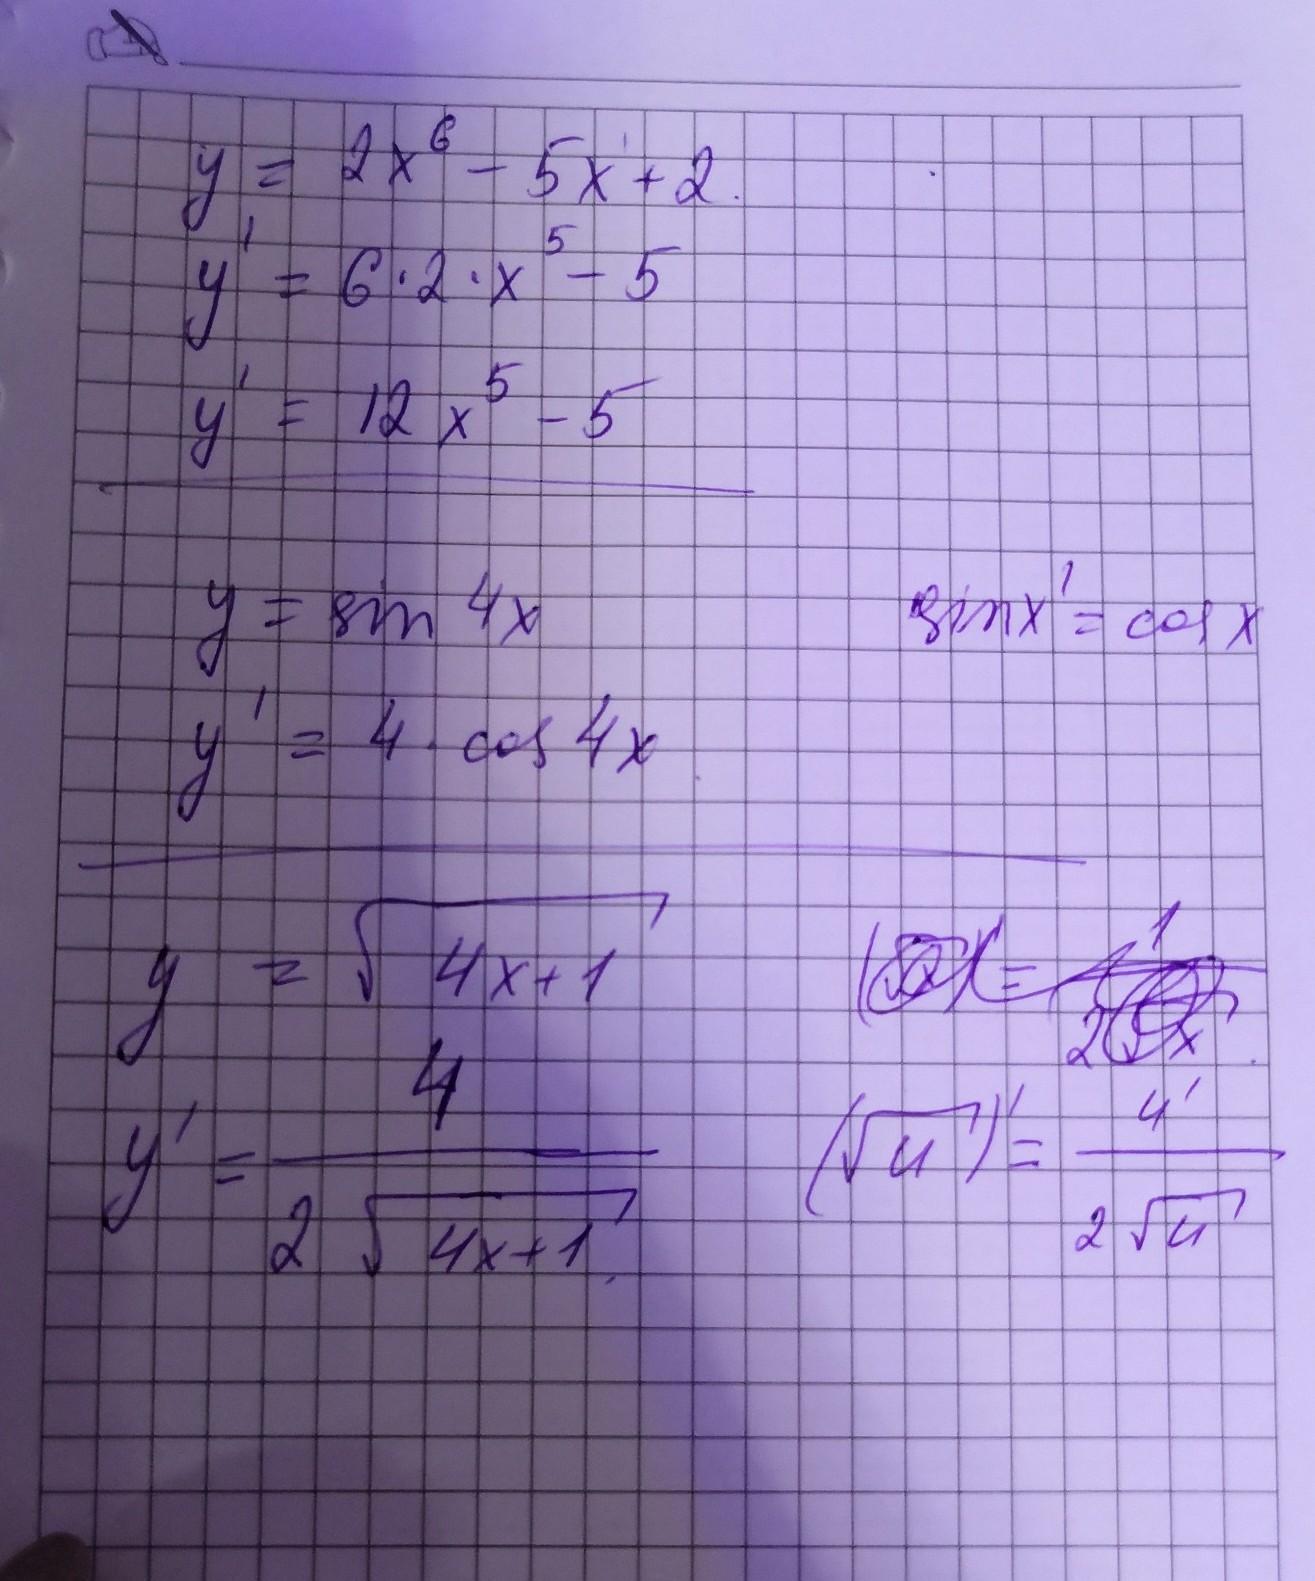 y = 2x⁶ - 5x' + 2.
y' = 6·2·x⁵ - 5
y' = 12x⁵ - 5
y = sin 4x
sinx' = cos x
y' = 4 · cos 4x
y = √(4x+1)
y' = 4 / (2√(4x+1))
(√u)' = u' / (2√u)